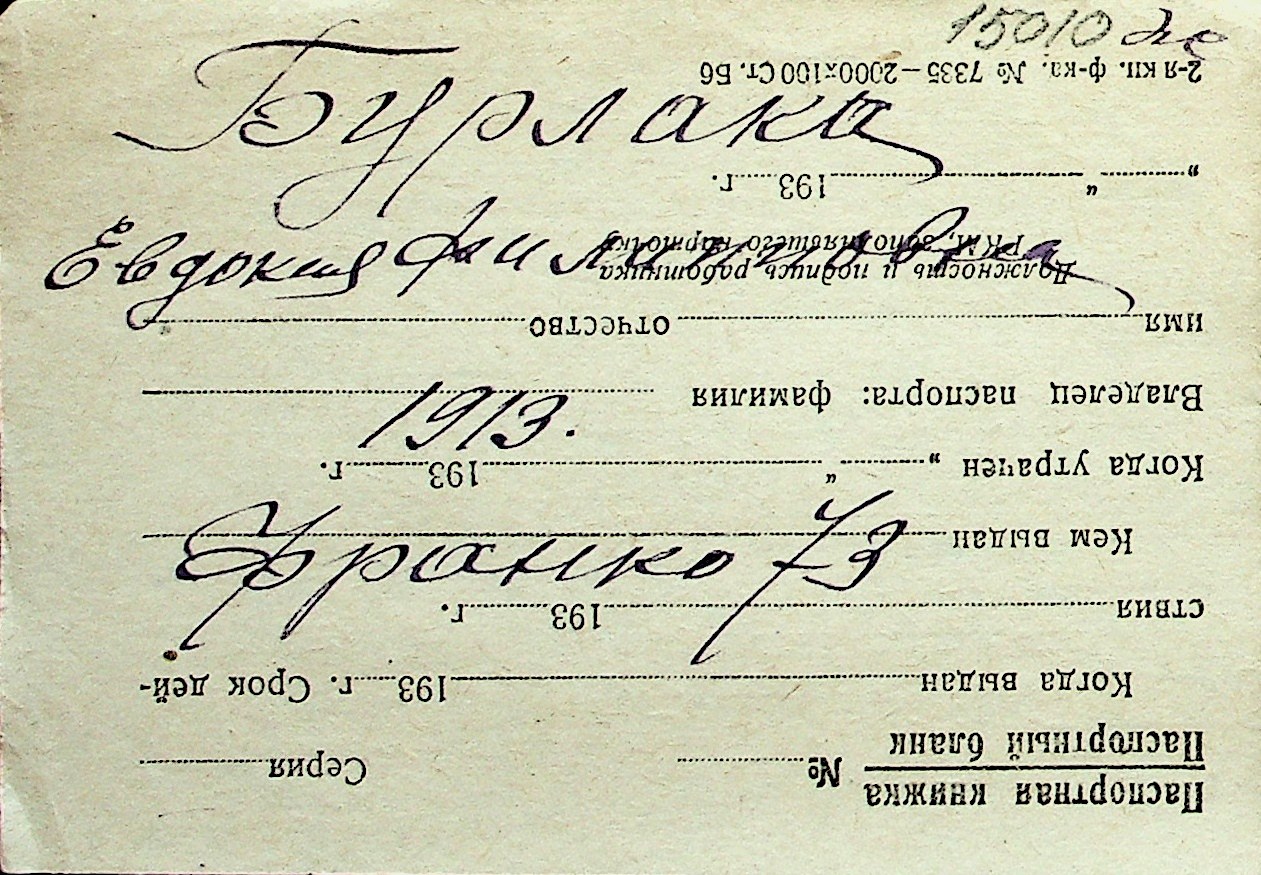 15010 дс
Бурлака
Евдокия Филипповна
1913.
Франко 73
Паспортная книжка
Паспортный бланк
№ Серия
Когда выдан 193 г. Срок дей-
ствия 193 г.
Кем выдан
Когда утрачен „ “ 193 г.
Владелец паспорта: фамилия
имя отчество
Должность и подпись работника
РКМ, заполнявшего карточку
„ “ 193 г.
2-я кп. ф-ка. № 7335—2000×100 Ст. Б6